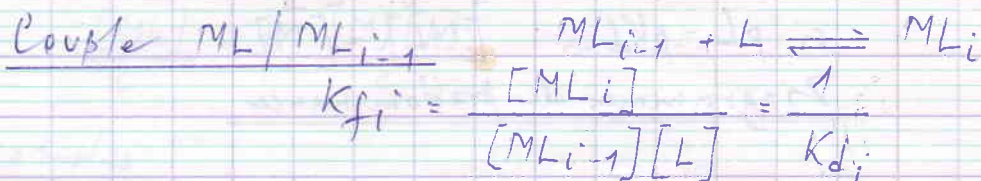 Couple ML/MLi-1   MLi-1 + L ⇌ MLi
Kfi = [MLi] / [MLi-1][L] = 1 / Kdi